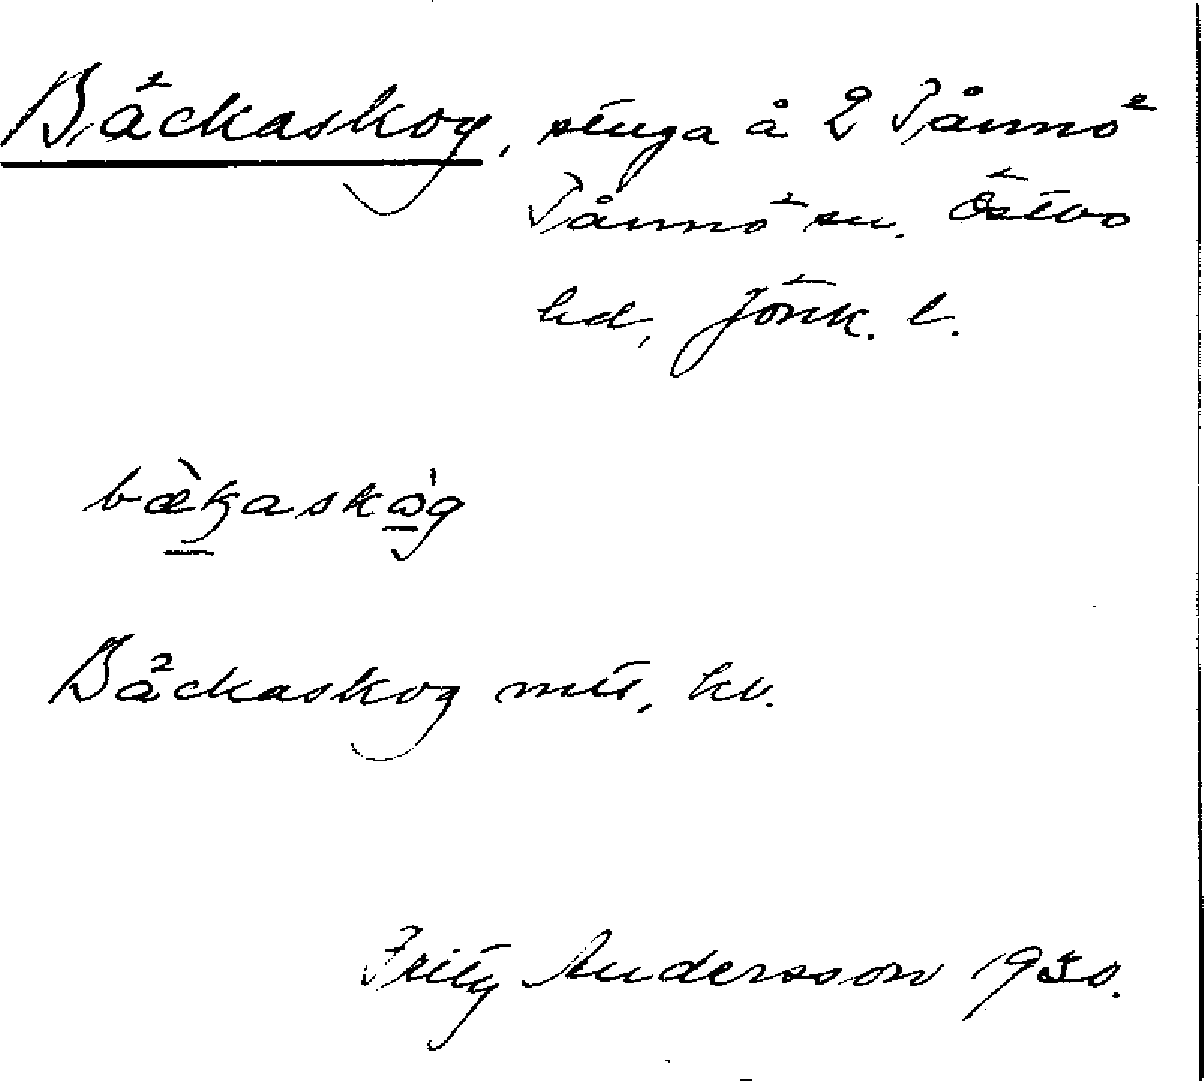 Bäckaskog, stuga å 2 Tånnö
Tånnö sn. Östbo
hd, Jönk. l.
bæ̀kaskóg
Bäckaskog mtl, kv.
Frity Andersson 1930.